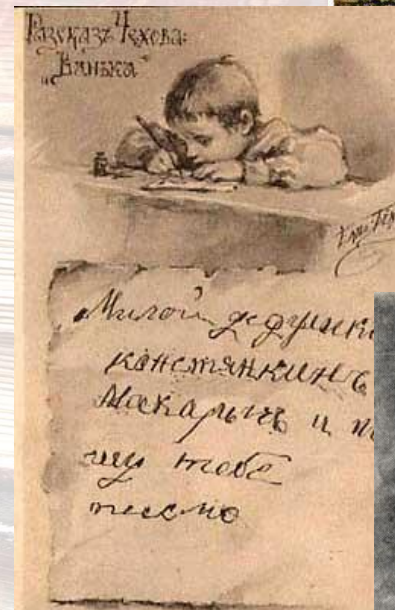 Разсказъ Чехова:
„Ванька"
Милой дедушка
констянкинъ
Макарычъ и п
ишу тебе
писмо